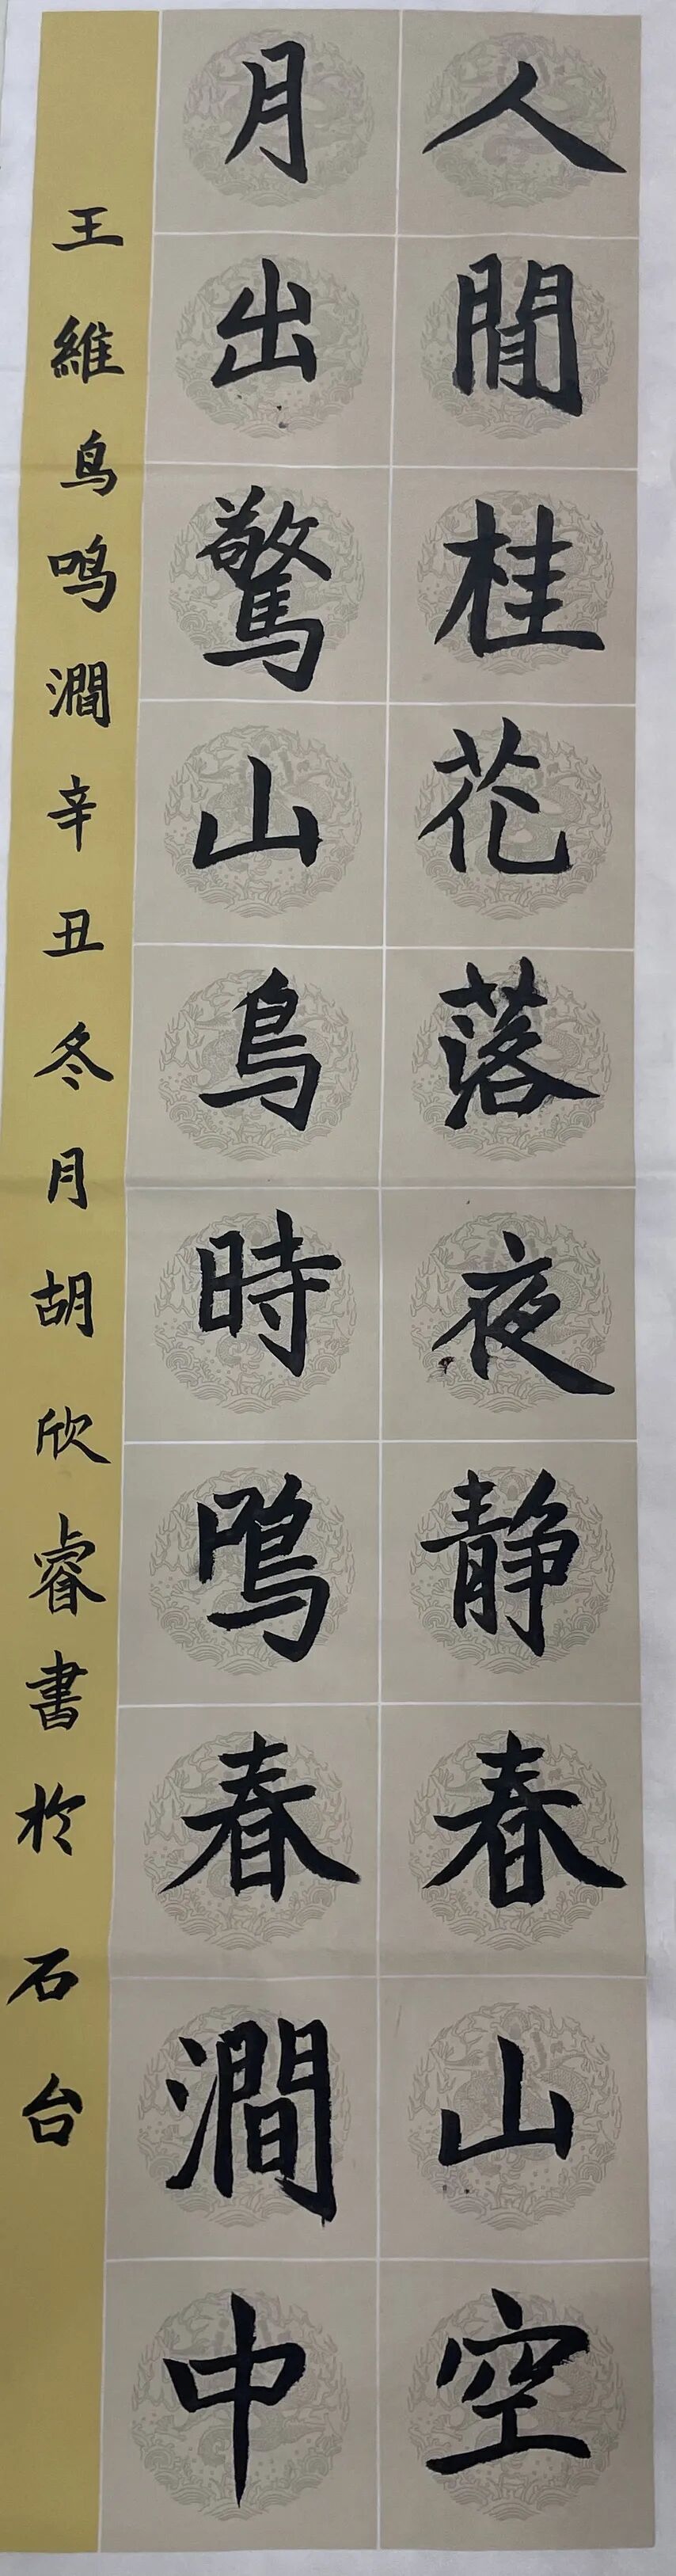 人閒桂花落夜静春山空
月出驚山鳥時鳴春澗中
王維鸟鸣澗辛丑冬月胡欣睿書於石台